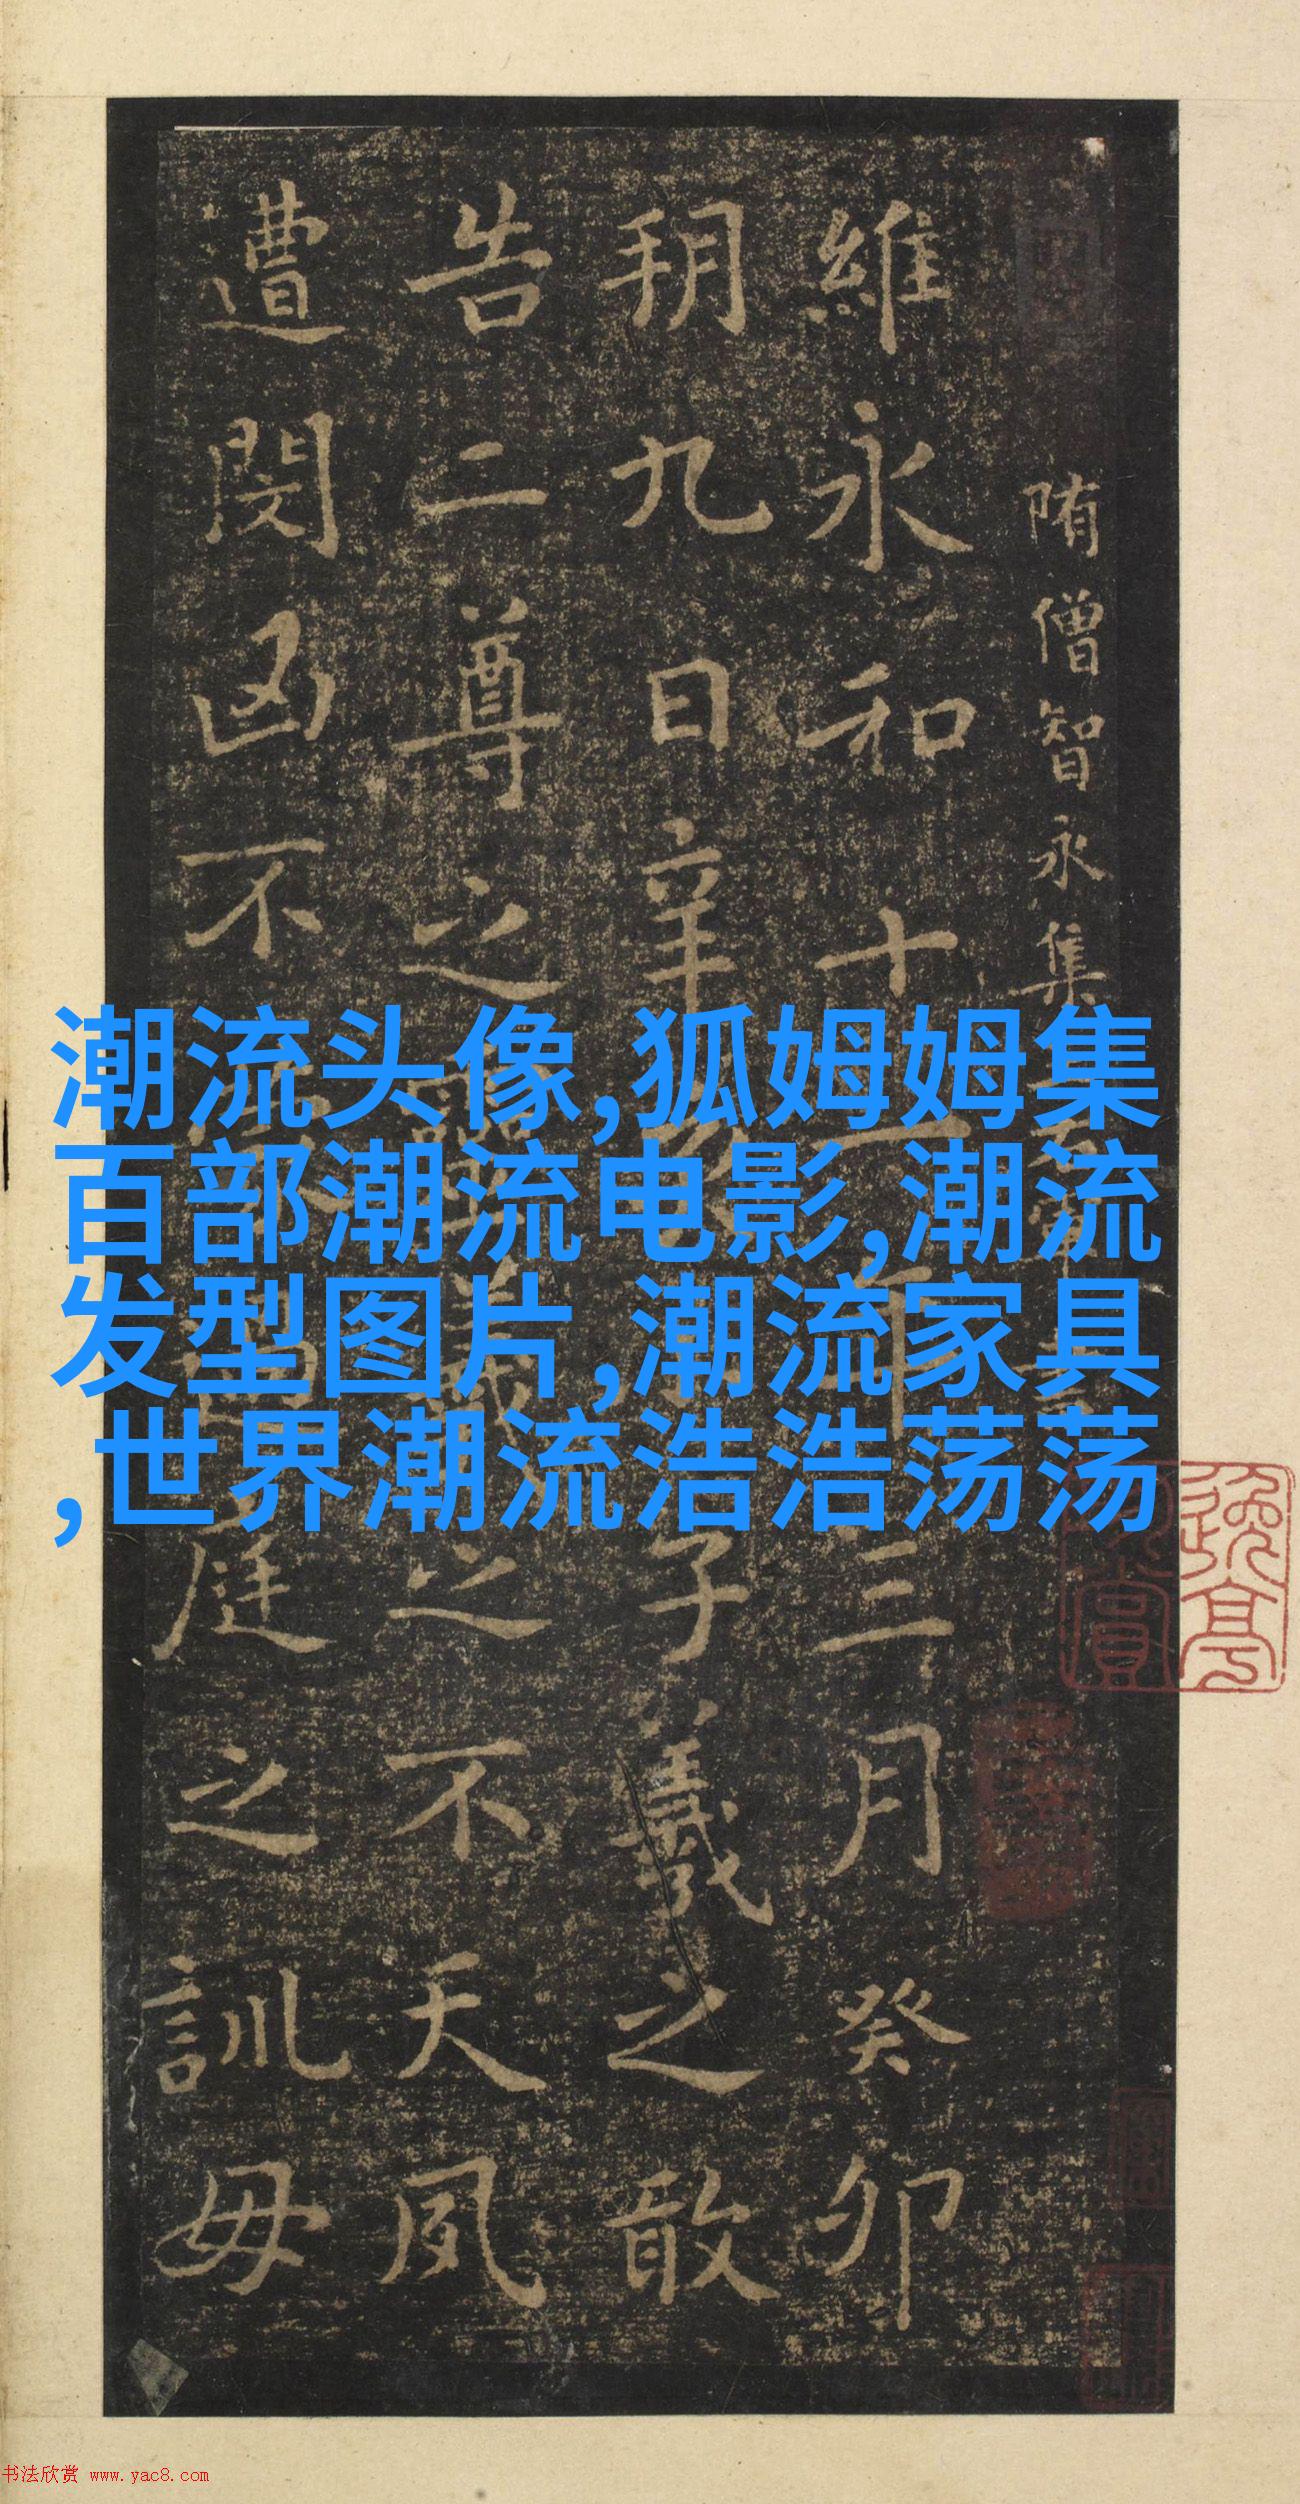 隋僧智永集
維永和十一年三月癸卯
朔九日辛子羲之敢
告二尊之靈羲之不天夙
遭閔凶不庭之訓毋
潮流头像,狐姆姆集
百部潮流电影,潮流
发型图片,潮流家具
,世界潮流浩浩荡荡
书法欣赏 www.yac8.com